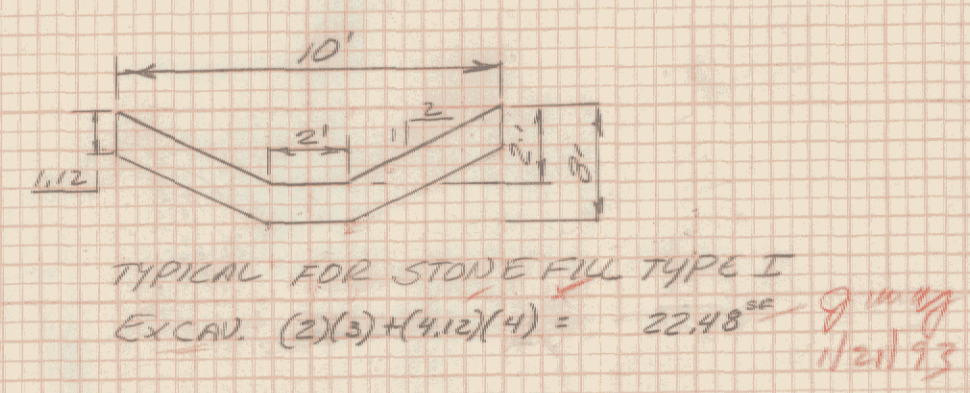 10'
2
1
2'
2'
3'
1.12
TYPICAL FOR STONE FILL TYPE I
EXCAV. (2)(3)+(4.12)(4) = 22.48 SF
1/21/93